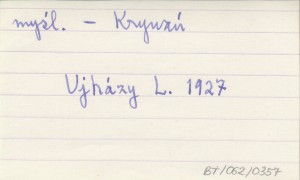 myśl. - Krywań
Ujházy L. 1927
BT/062/0357